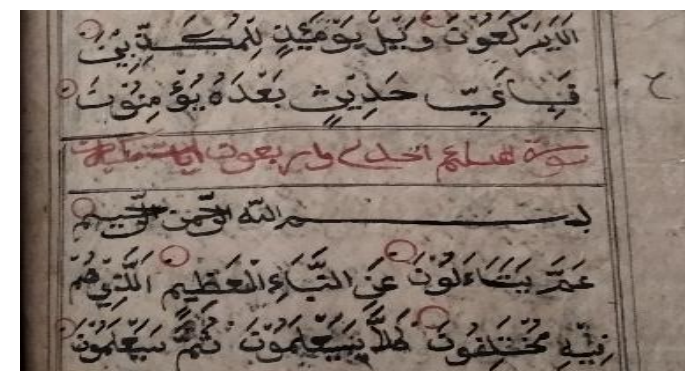 لَا يَرْكَعُونَ وَيْلٌ يَوْمَئِذٍ لِّلْمُكَذِّبِينَ
فَبِأَيِّ حَدِيثٍ بَعْدَهُ يُؤْمِنُونَ
سورة احدى واربعون
بسم الله الرحمن الرحيم
عَمَّ يَتَسَاءَلُونَ عَنِ النَّبَإِ الْعَظِيمِ الَّذِي هُمْ
فِيهِ مُخْتَلِفُونَ كَلَّا سَيَعْلَمُونَ ثُمَّ سَيَعْلَمُونَ